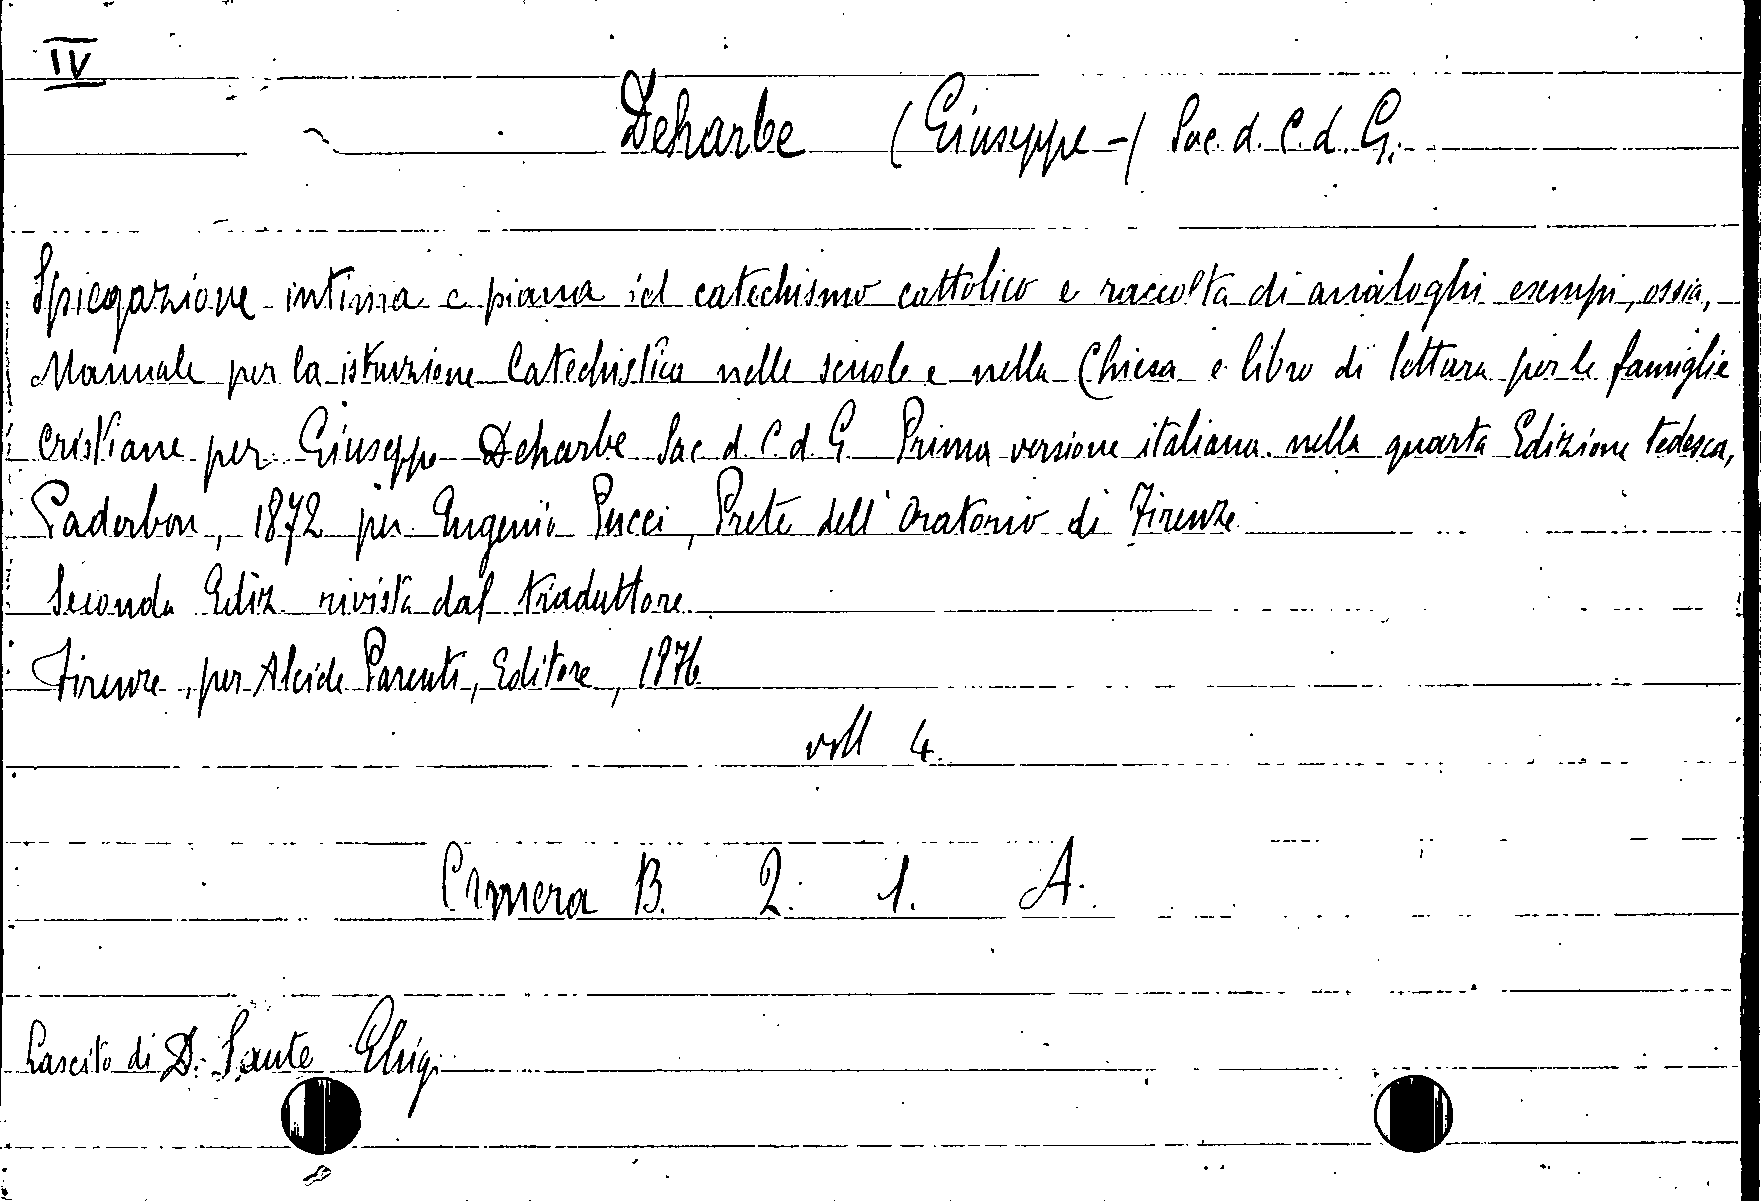 IV
Deharbe (Giuseppe -) Sac. d. C. d. G.
Spiegazione intima e piana del catechismo cattolico e raccolta di analoghi esempi, ossia,
Manuale per la istruzione Catechistica nelle scuole e nella Chiesa e libro di lettura per le famiglie
cristiane per Giuseppe Deharbe Sac d. C. d. G. Prima versione italiana nella quarta Edizione tedesca,
Paderbon, 1872 per Eugenio Pucci, Prete dell'Oratorio di Firenze
Seconda Ediz. rivista dal traduttore
Firenze, per Alcide Parenti, Editore, 1876
voll 4.
Camera B. 2. 1. A.
Lascito di D. Sante